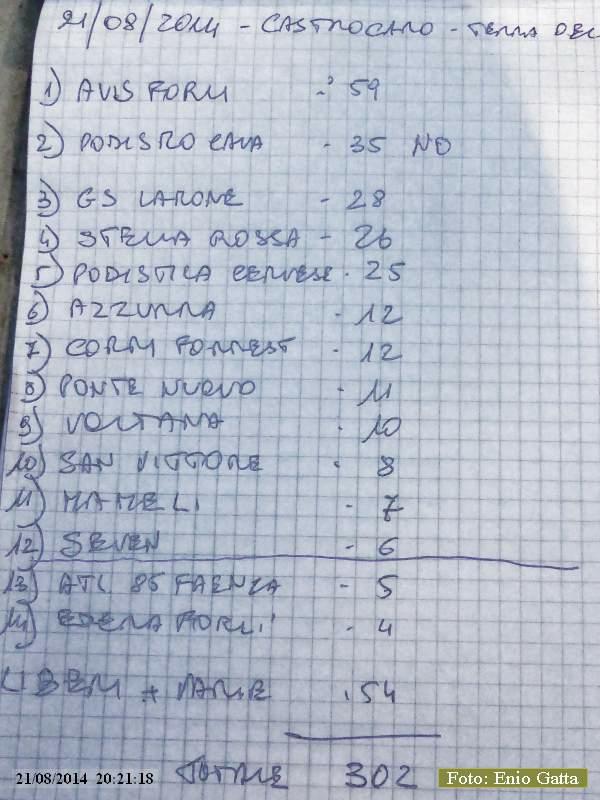 21/08/2014 - CASTROCARO - TERRA DEL
1) AVIS FORLI - 59
2) PODISTI CAVA - 35 NO
3) GS LARONE - 28
4) STELLA ROSSA - 26
5) PODISTICA CERVESE - 25
6) AZZURRA - 12
7) CORRI FORREST - 12
8) PONTE NUOVO - 11
9) VOLTANA - 10
10) SAN VITTORE - 8
11) MAMELI - 7
12) SEVEN - 6
13) ATL 85 FAENZA - 5
14) EDERA FORLI' - 4
LIBERI + VARIE . 54
TOTALE 302
21/08/2014 20:21:18
Foto: Enio Gatta